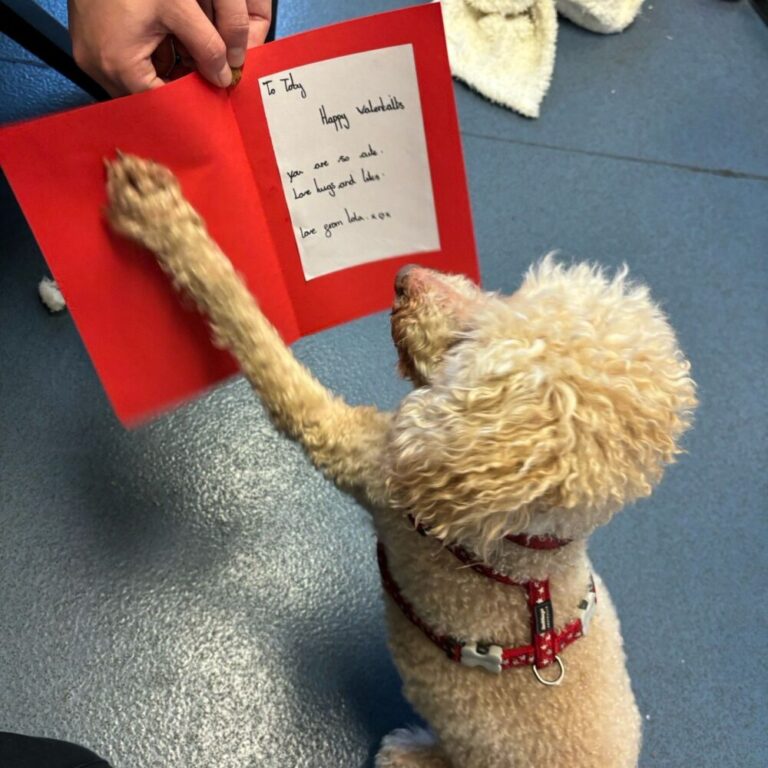 To Toby
Happy Valentines
you are so cute.
Love hugs and licks.
love from lola. xox